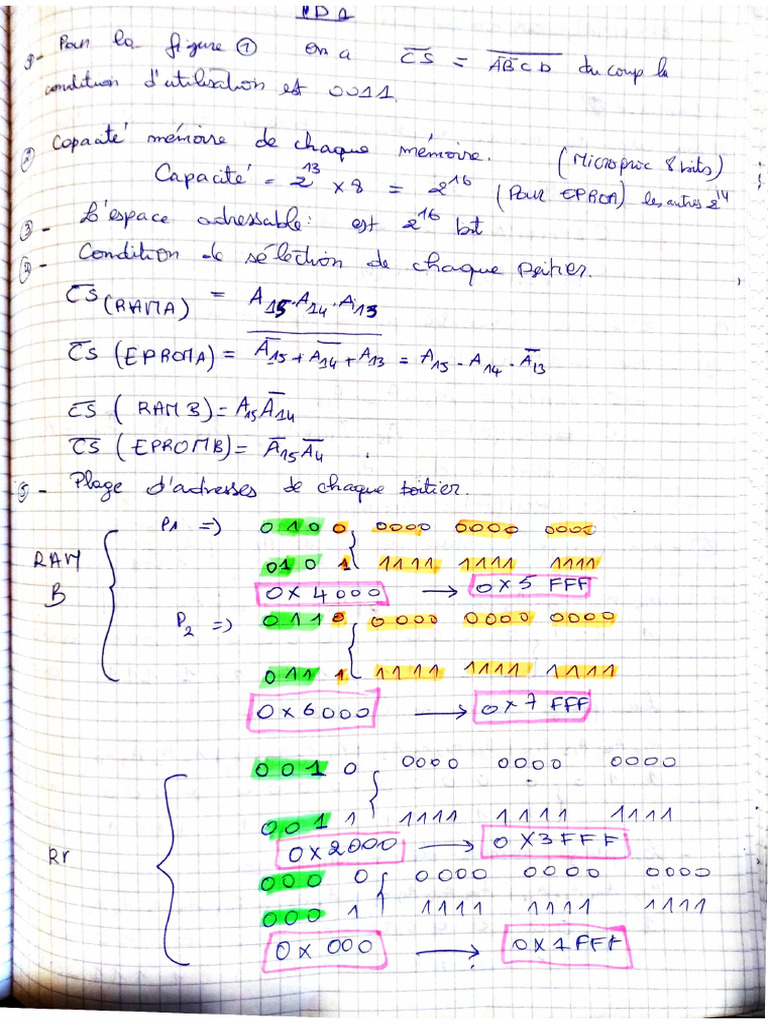 TD 1
1- Pour la figure ① on a C̅S̅ = A̅B̅C̅D̅ du coup la
condition d'utilisation est 0011.
② Capacité mémoire de chaque mémoire. (Microproc 8 bits)
Capacité = 2¹³ x 8 = 2¹⁶ (Pour EPROM) les autres 2¹⁴
③ - L'espace adressable : est 2¹⁶ bit
- Condition de sélection de chaque boitier.
C̅S̅ (RAMA) = A₁₅.A₁₄.A₁₃
C̅S̅ (EPROMA) = \overline{A̅₁₅ + A̅₁₄ + A₁₃} = A₁₅.A₁₄.A̅₁₃
C̅S̅ (RAM B) = A₁₅A̅₁₄
C̅S̅ (EPROMB) = A̅₁₅A̅₄
5 - Plage d'adresses de chaque boitier.
P1 => 0100 0000 0000 0000
RAM B
0101 1111 1111 1111
0x4000 → 0x5FFF
P2 => 0110 0000 0000 0000
0111 1111 1111 1111
0x6000 → 0x7FFF
0010 0000 0000 0000
0011 1111 1111 1111
0x2000 → 0x3FFF
Rr
0000 0000 0000 0000
0001 1111 1111 1111
0x000 → 0x1FFF